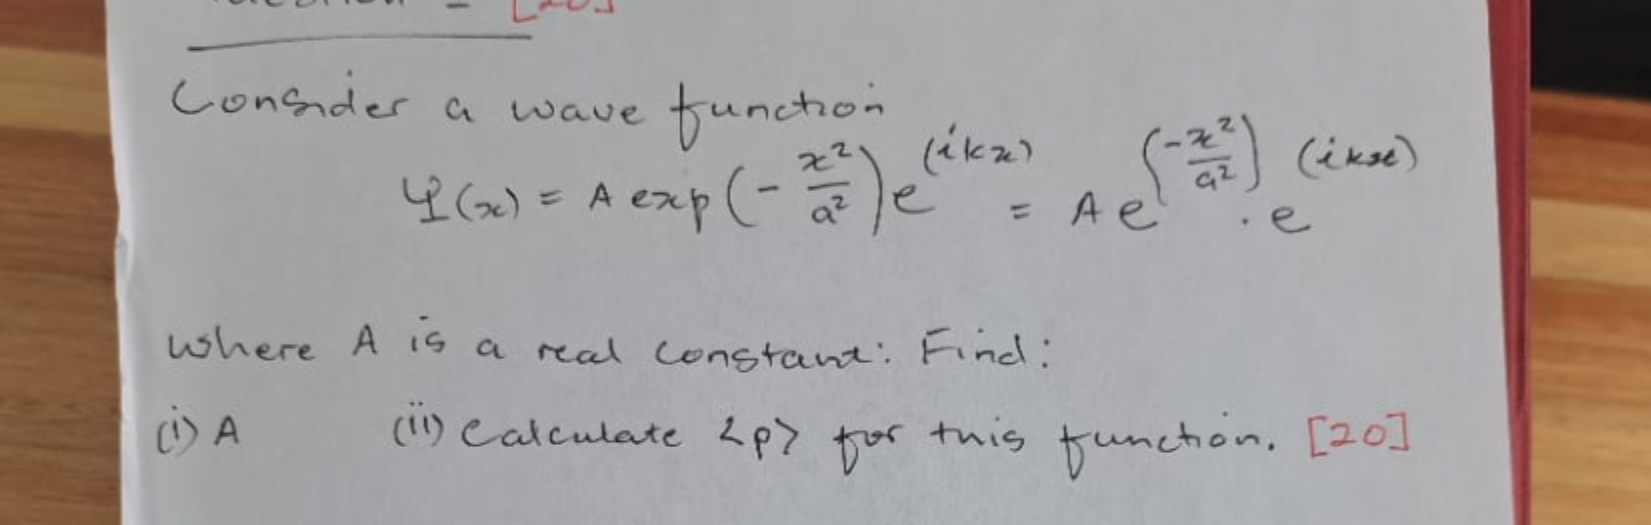 [20]
Consider a wave function
Ψ(x) = A exp(-x²/a²)e^(ikx) = A e^(-x²/a²) . e^(ikx)
where A is a real constant: Find:
(i) A (ii) Calculate <p> for this function. [20]